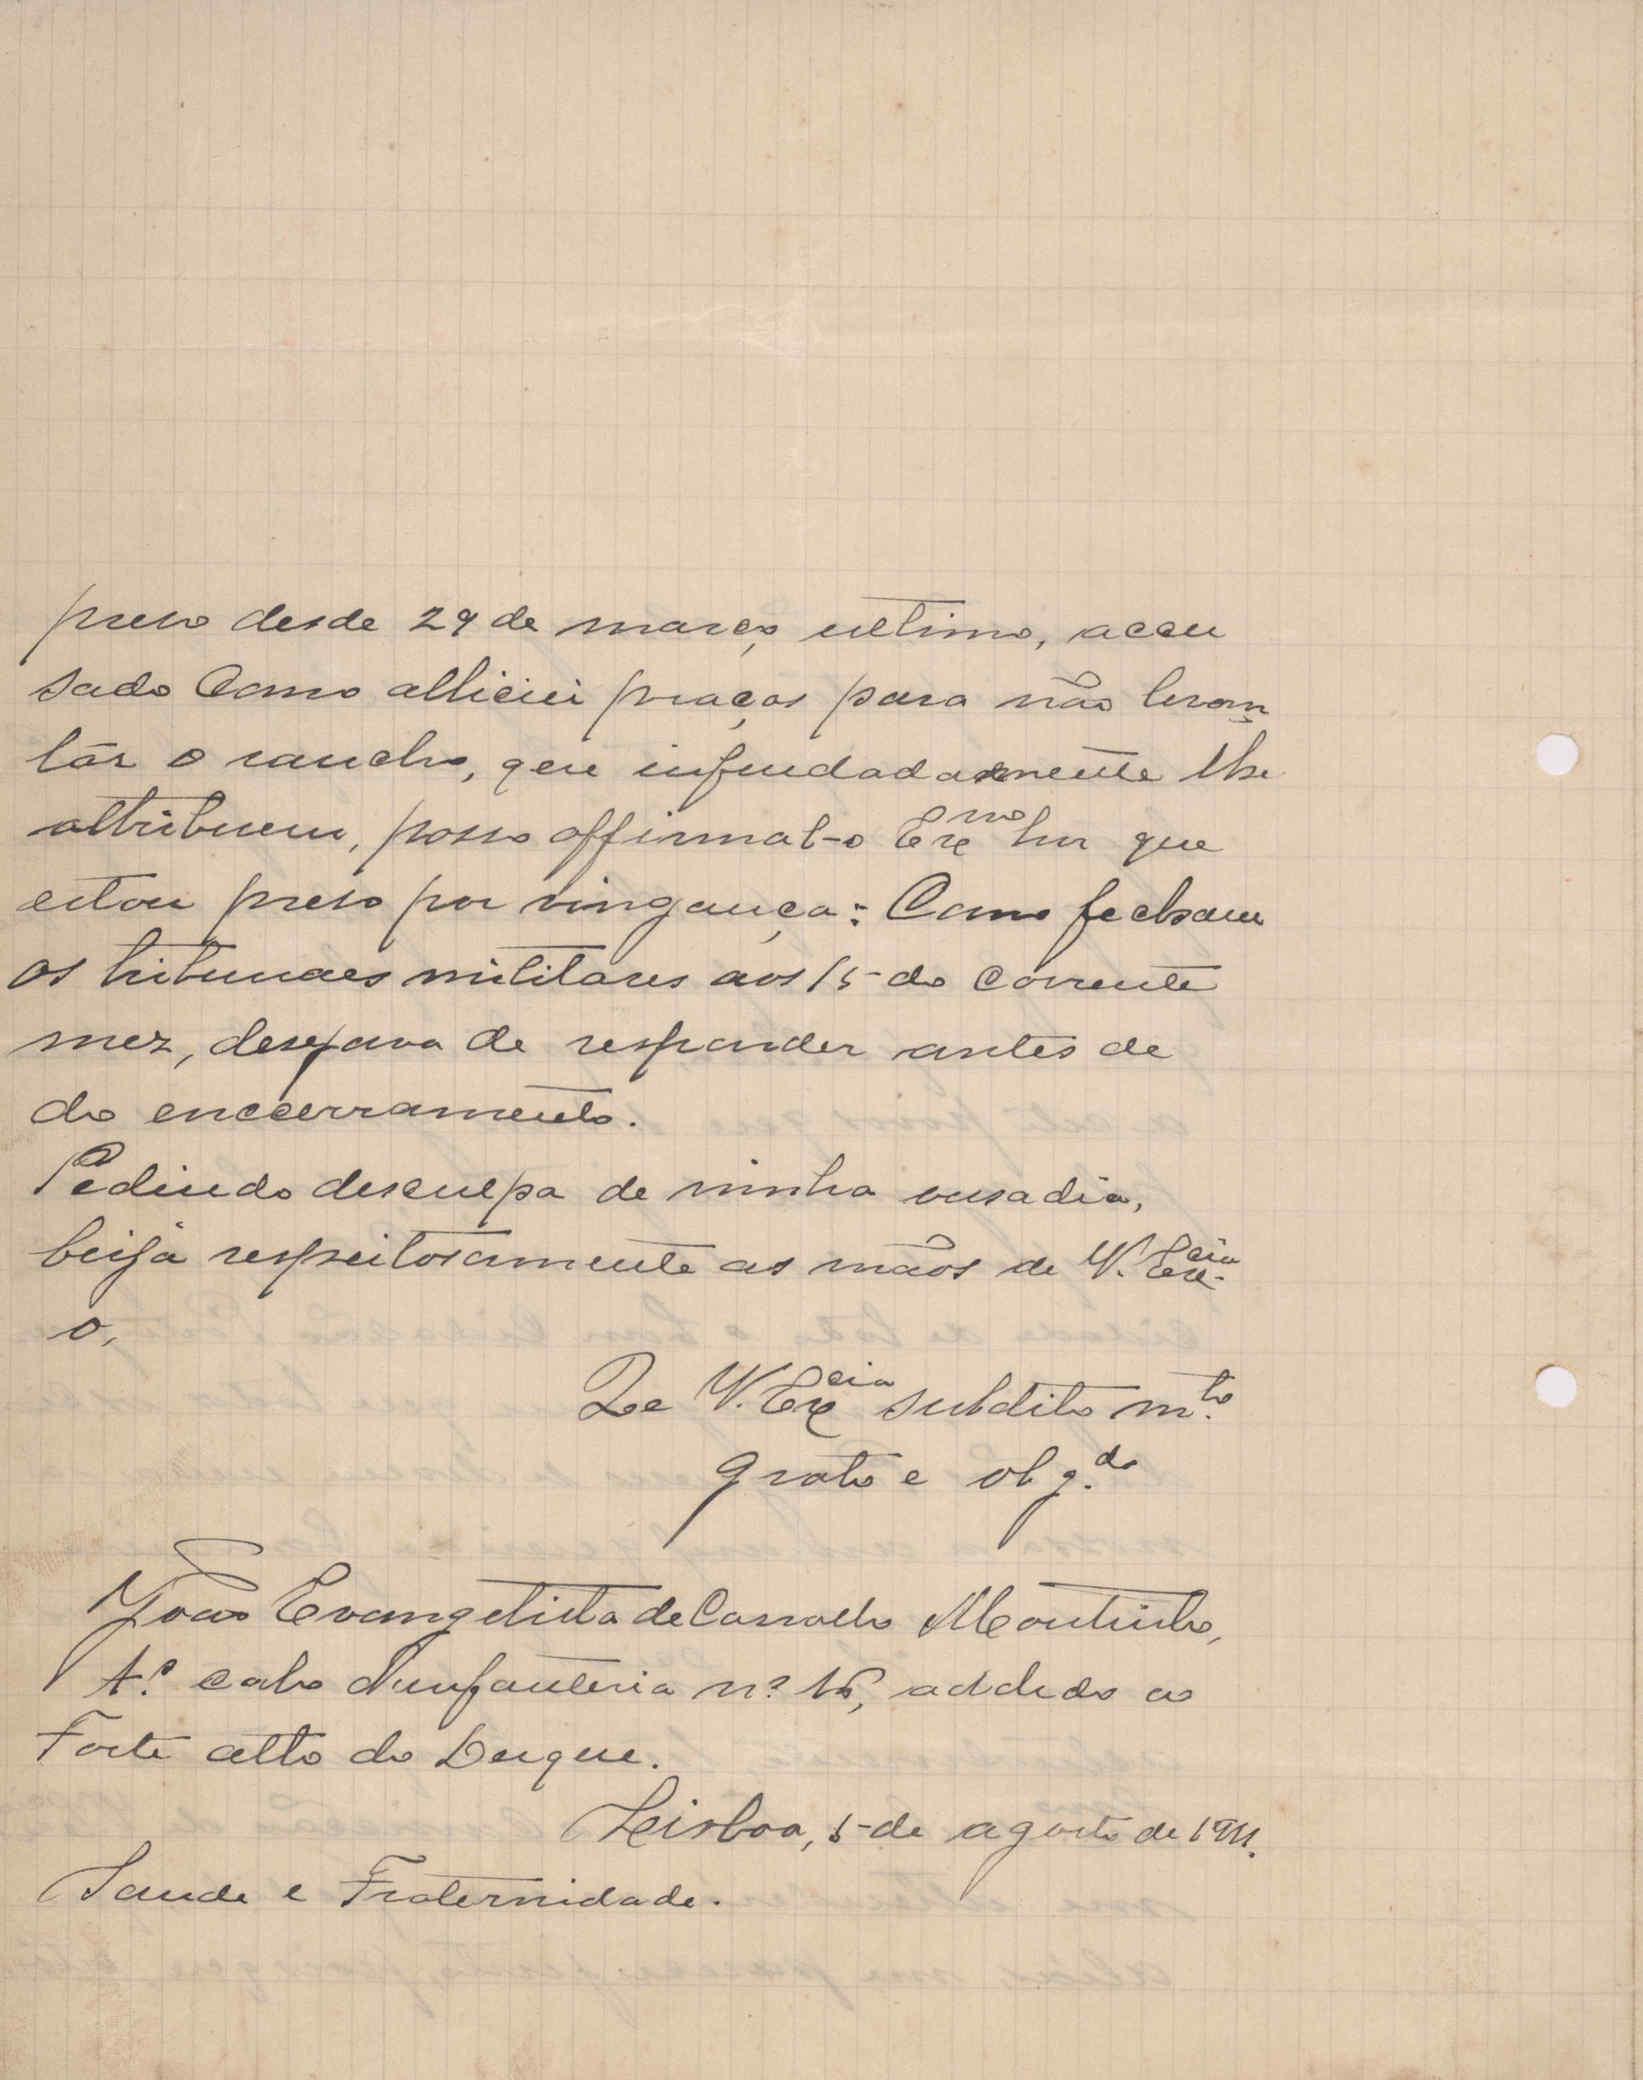 preso desde 29 de março ultimo, accu
sado como alliciei praças para não levan
tár o rancho, que infundadamente lhe
attribuem, posso affirmal-o Exmo Snr que
estou preso por vingança: Como fecham
os tribunaes militares aos 15 do corrente
mez, desejava de responder antes de
do enccerramento.
Pedindo desculpa de minha ousadia,
beija respeitosamente as mãos de V. Excia
o,
De V. Excia subdito mto
grato e obgdo
João Evangelista de Carvalho Moutinho,
1º cabo d'infanteria nº 16, addido ao
Forte alto do Duque.
Lisboa, 5 de agosto de 1911.
Saude e Fraternidade.